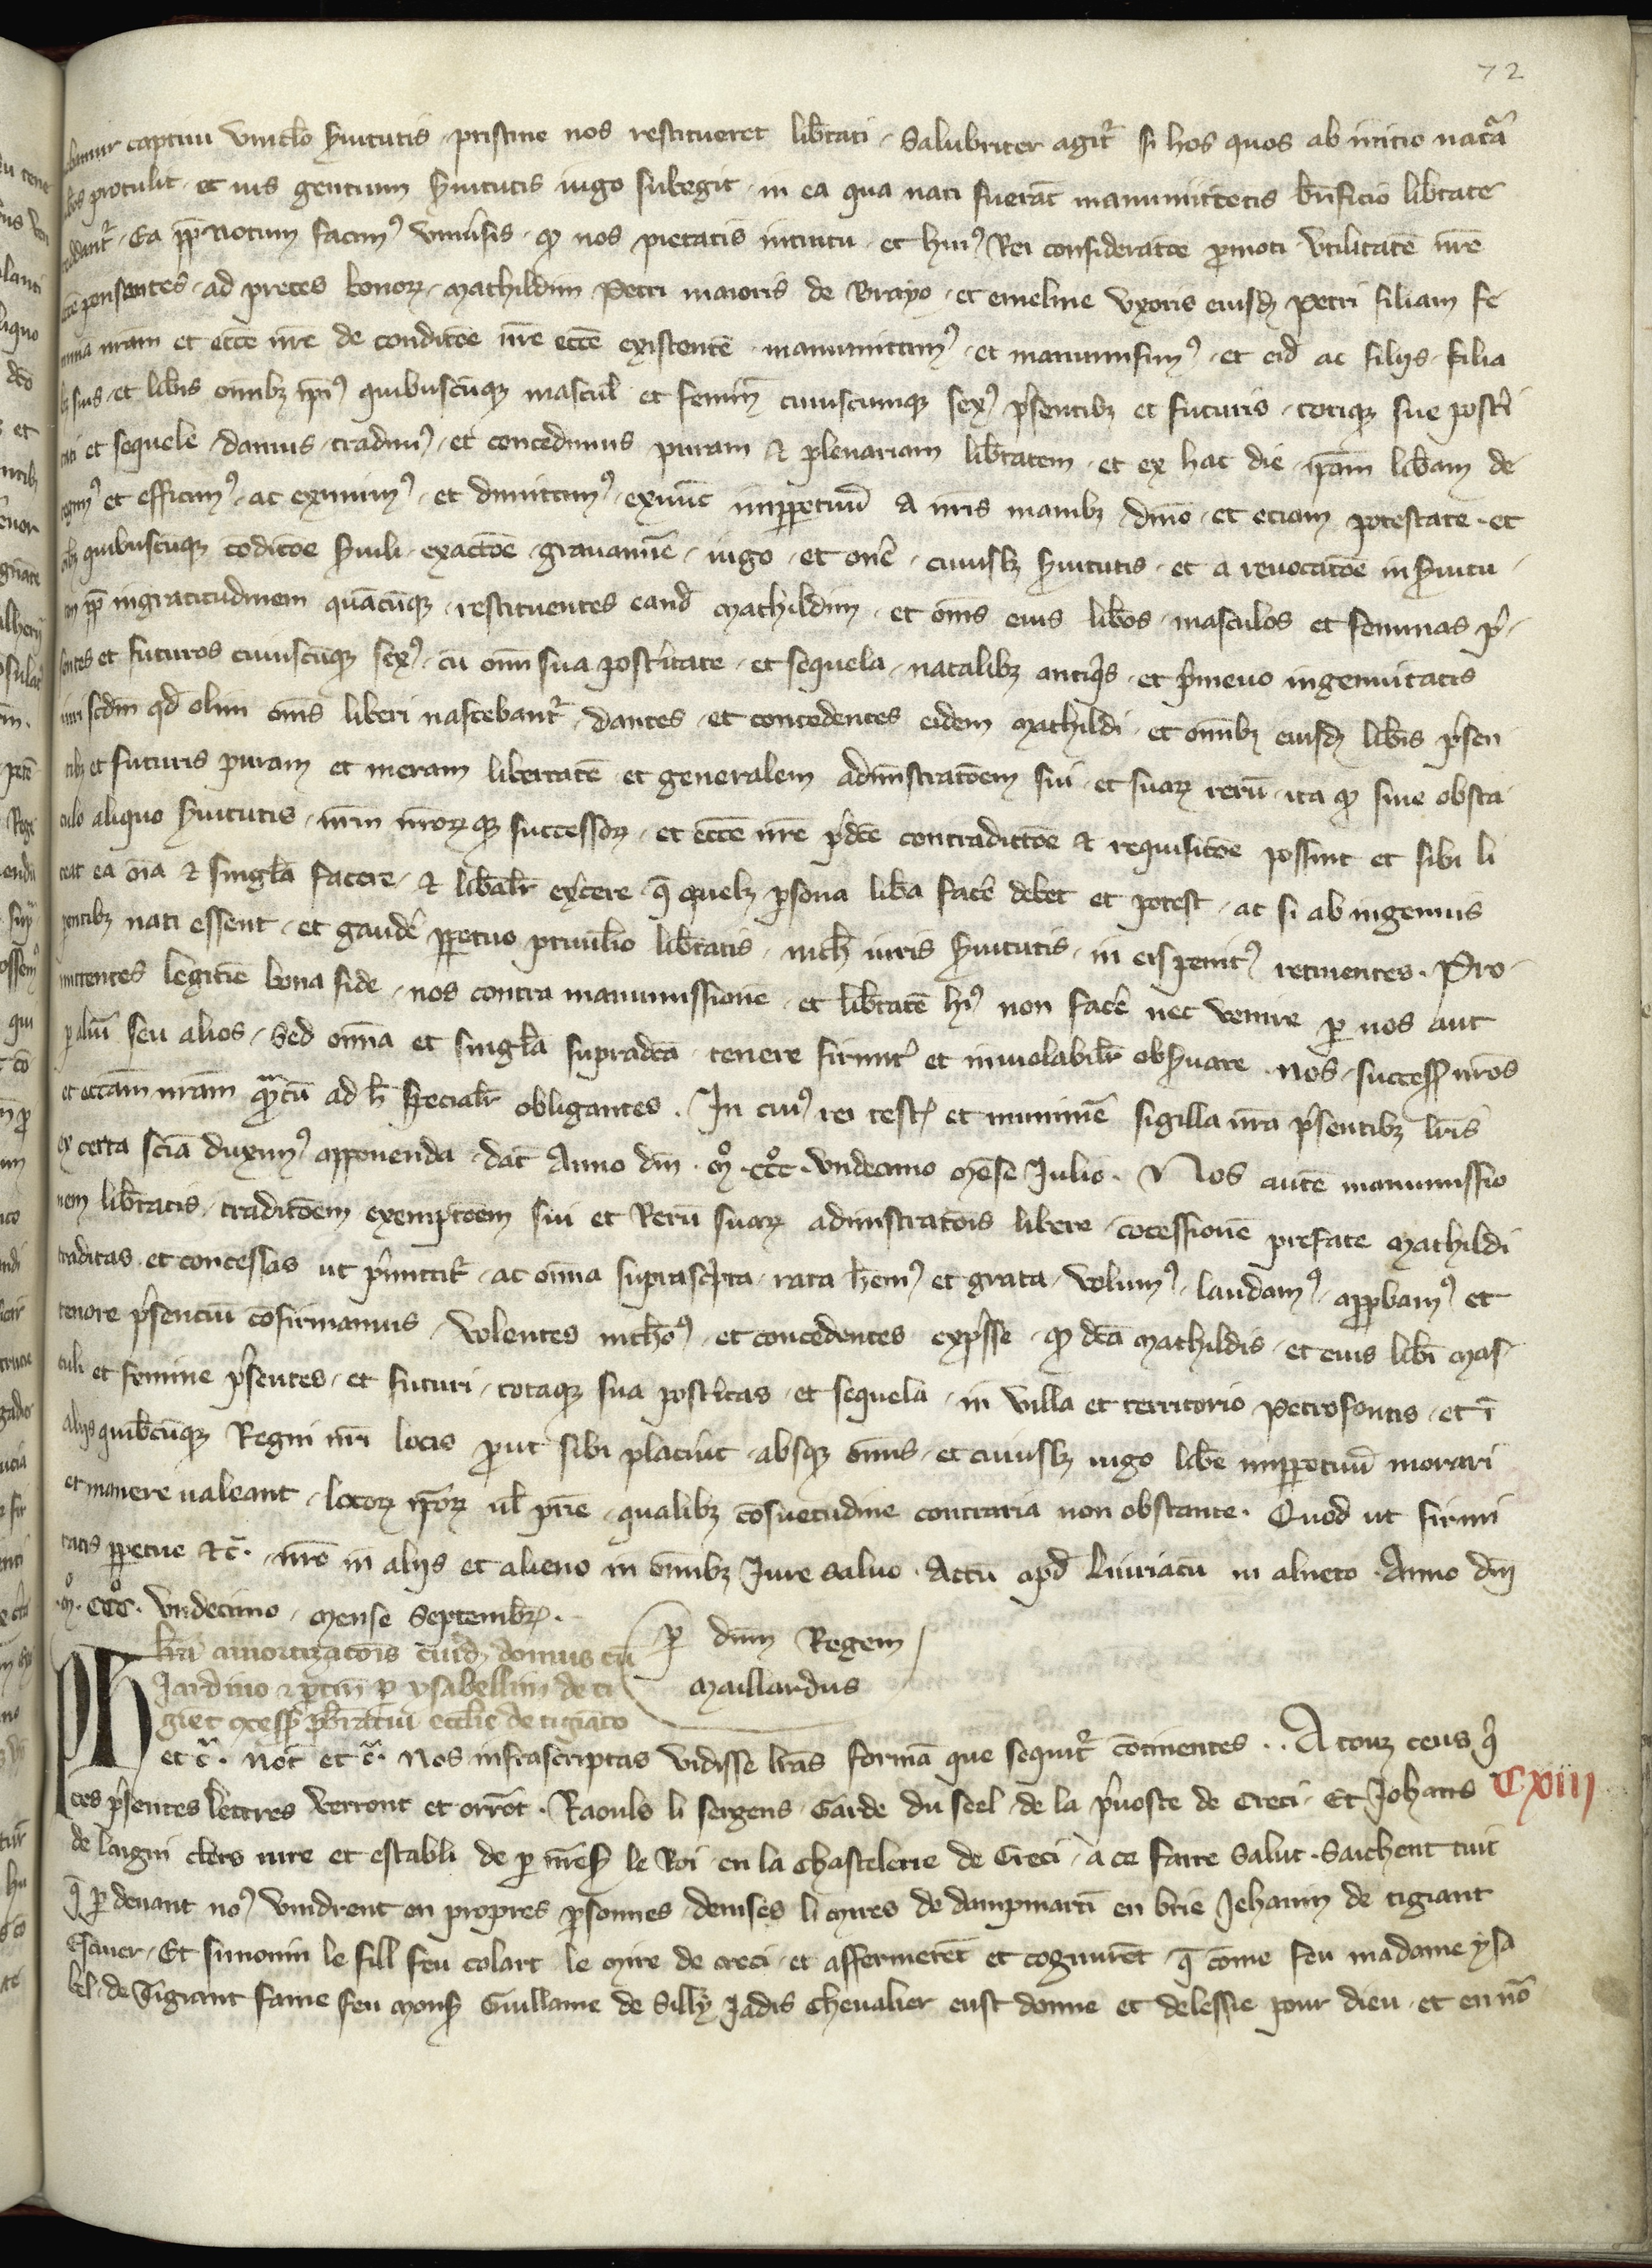 72
captiui vincl̃o s̃uitutis pristine nos restitueret lib̃tati. Salubriter agit᷑ si hos quos ab initio nat᷑a
protulit et ius gentium s̃uitutis iugo subegit in ea qua nati fuerãt manumittẽtis bñficio lib̃tate
Ea pp̃ notum facimꝰ vniũsis qꝫ nos pietatis intuitu et huiꝰ Rei consideratõe ꝓmoti vtilitatẽ nr̃e
pensantes ad preces bonoꝝ Mathildim Petri maioris de Brayo et emeline vxoris eiusdꝫ Petri filiam fe
nr̃am et eccẽ nr̃e de conditõe nr̃e eccẽ existentẽ manumittimꝰ et manumisimꝰ et eid̃ ac filijs filia
suis et lib̃is om̃ibꝫ ip̃iꝰ quibuscũqꝫ mascul̃ et femiñ cuiuscumqꝫ sexꝰ p̃sentibꝫ et futuris totiqꝫ sue post̃i
tati et sequele damus tradimꝰ et concedimus puram ⁊ plenariam lib̃tatem et ex hac die ip̃am lib̃am de
et efficimꝰ ac eximimꝰ et dimittimꝰ exnũc imꝑpetuũ a nr̃is manibꝫ dñio et eciam potestate et
quibuscũqꝫ cõditõe s̃uili exactõe grauamiẽ iugo et oñe cuiuslꝫ s̃uitutis et a reuocatõe in s̃uitu
pp̃ ingratitudinem quãcũqꝫ restituentes eand̃ Mathildim et om̃s eius lib̃os masculos et feminas p̃
sentes et futuros cuiuscũqꝫ sexꝰ cũ om̃i sua post̃itate et sequela natalibꝫ antiqis et p̃meuo ingenuitatis
iuri scdm̃ qd̃ olim om̃s liberi nascebant᷑ dantes et concedentes eidem Mathildi et om̃ibꝫ eiusdꝫ lib̃is p̃sen
tibꝫ et futuris puram et meram libertatẽ et generalem admĩstratõem sui et suaꝝ rerũ ita qꝫ sine obsta
culo aliquo s̃uitutis nr̃m nr̃oꝝqꝫ successoꝝ et eccẽ nr̃e p̃dc̃e contradictõe ⁊ requisitõe possint et sibi li
ceat ea oĩa ⁊ singl̃a facere ⁊ lib̃alr̃ ex̃cere q̃ quelꝫ ꝑsona lib̃a fac̃e debet et potest ac si ab ingenuis
nati essent et gaud̃e ꝑpetuo priuil̃io lib̃tatis nich̃ iuris s̃uitutis in eis penitꝰ retinentes. Pro
mittentes legitiẽ bona fide nos contra manumissionẽ et lib̃tatẽ hiꝰ non fac̃e nec venire ꝑ nos aut
ꝑ aliũ seu alios. Sed om̃ia et singl̃a supradc̃a tenere firmit᷑ et inuiolabilr̃ obs̃uare nos success̃ nr̃os
et eccãm nr̃am qᵃtũ ad h̃ specialr̃ obligantes. In cuiꝰ rei test̃ et munimẽ sigilla nr̃a p̃sentibꝫ lr̃is
ex certa sciã duximꝰ apponenda dat̃ Anno dñi .Mº.CCCº. vndecimo Mẽse Julio. Nos autẽ manumissio
nem lib̃tatis traditõem exemptõem sui et Rerũ suaꝝ admistratõis libere cõcessionẽ prefate Mathildi
traditas et concessas ut p̃mittit᷑ ac om̃ia suprasc̃pta rata h̃emꝰ et grata volumꝰ laudamꝰ approbamꝰ et
tenore p̃senciũ cõfirmamus volentes nich̃oꝰ et concedentes exp̃sse qꝫ dc̃a Mathildis et eius lib̃i mas
culi et femine p̃sentes et futuri totaqꝫ sua post̃itas et sequela in villa et territorio Petrofontis et ĩ
alijs quibꝫcũqꝫ Regni nr̃i locis ꝓut sibi placuit absqꝫ om̃is et cuiuslꝫ iugo lib̃e imꝑpetuũ morari
et manere ualeant locoꝝ ip̃oꝝ ul̃ pr̃ie qualibꝫ cõsuetudine contraria non obstante. Quod ut firmi
tatis ꝑpetue ⁊c̃. nr̃o in alijs et alieno in om̃ibꝫ Jure saluo. Actũ apd̃ Liuriacũ in alneto Anno dñi
.Mº.CCCº. vndecimo mense Septembꝝ.
ꝑ dñm Regem
Maillardus
lr̃a amortizatõis cuidꝫ domus cũ
Jardino ⁊ ꝑtiñ ꝑ ysabellim de ti
giet gcess̃ pb̃ratui eccl̃ie de tigiaco
Ph̃ et c̃. Not̃ et c̃. Nos infrascriptas vidisse lr̃as formã que sequit᷑ cõtinentes.. A touz ceus q̃
ces p̃sentes lettres verront et orrõt. Raouls li sergens garde du seel de la p̃uoste de Creci Et Johans
CXIII
de laigni clers iure et establi de ꝑ nr̃e s̃ le Roi en la Chastelerie de Creci a ce faire salut. Saichent tuit
q̃ ꝑ deuant noꝰ vindrent en propres ꝑsonnes denises li mires de dampmartĩ en brie Jehanin de tigiant
Et simonin le fill feu colart le mire de creci et affermerẽt et cognurẽt q̃ cõme feu madame ysa
bel de Tigiant fame feu mons̃ Guillame de Silly Jadis Chevalier eust donne et delessie pour dieu et en nõ